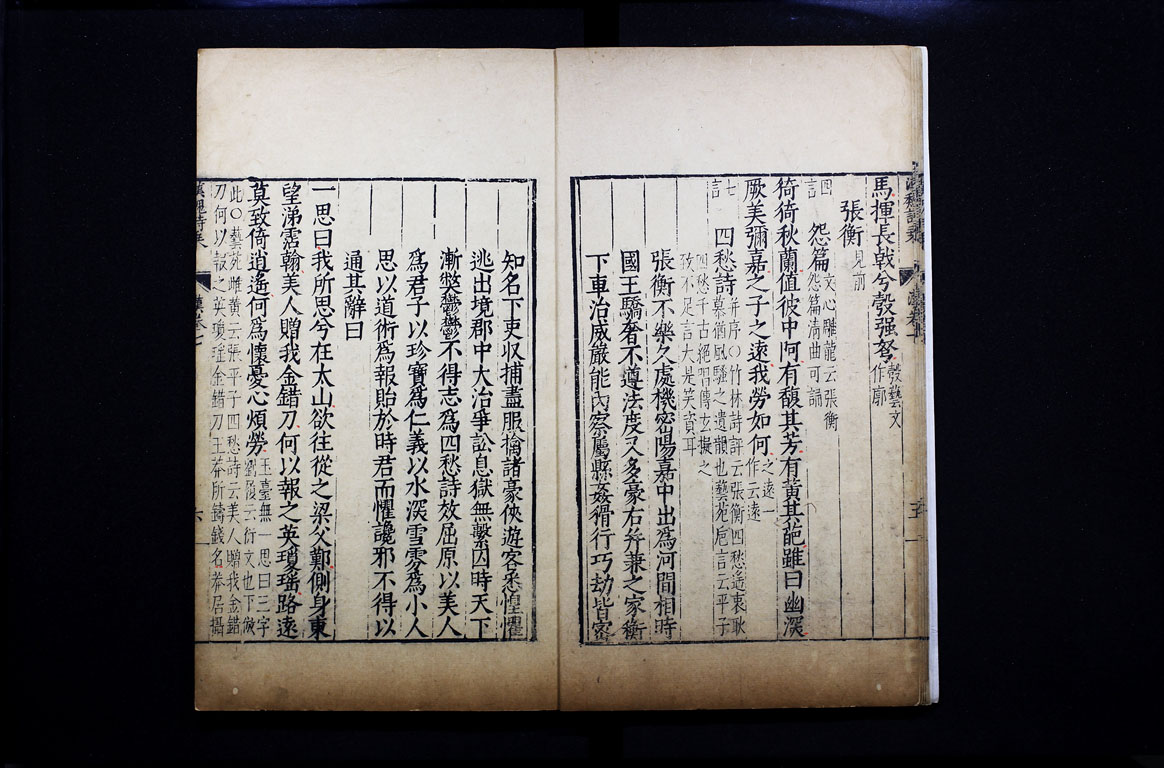 馬揮長戟兮彀强弩彀藝文作廓
張衡見前
四言
怨篇文心雕龍云張衡怨篇清曲可誦
猗猗秋蘭值彼中阿有馥其芳有黄其葩雖曰幽深
厥美彌嘉之子之遠我勞如何之遠一作云遠
七言
四愁詩并序○竹林詩評云張衡四愁遙衷耿慕猶風騷之遺韻也藝苑巵言云平子四愁千古絕唱傅玄擬之致不足言大是笑資耳
張衡不樂久處機密陽嘉中出爲河間相時
國王驕奢不遵法度又多豪右并兼之家衡
下車治威嚴能內察屬縣姦猾行巧劫皆密
知名下吏収捕盡服擒諸豪俠遊客悉惶懼
逃出境郡中大治爭訟息獄無繫囚時天下
漸獘鬱鬱不得志爲四愁詩放屈原以美人
爲君子以珍寶爲仁義以水深雪雰爲小人
思以道術爲報貽於時君而懼讒邪不得以
通其辭曰
一思曰我所思兮在太山欲往從之梁父艱側身東
望涕霑翰美人贈我金錯刀何以報之英瓊瑤路遠
莫致倚逍遙何爲懷憂心煩勞玉臺無一思曰三字劉履云衍文也下倣
此○藝苑雌黄云張平子四愁詩云美人贈我金錯刀何以報之英瓊瑤金錯刀王莽所鑄錢名莽居攝